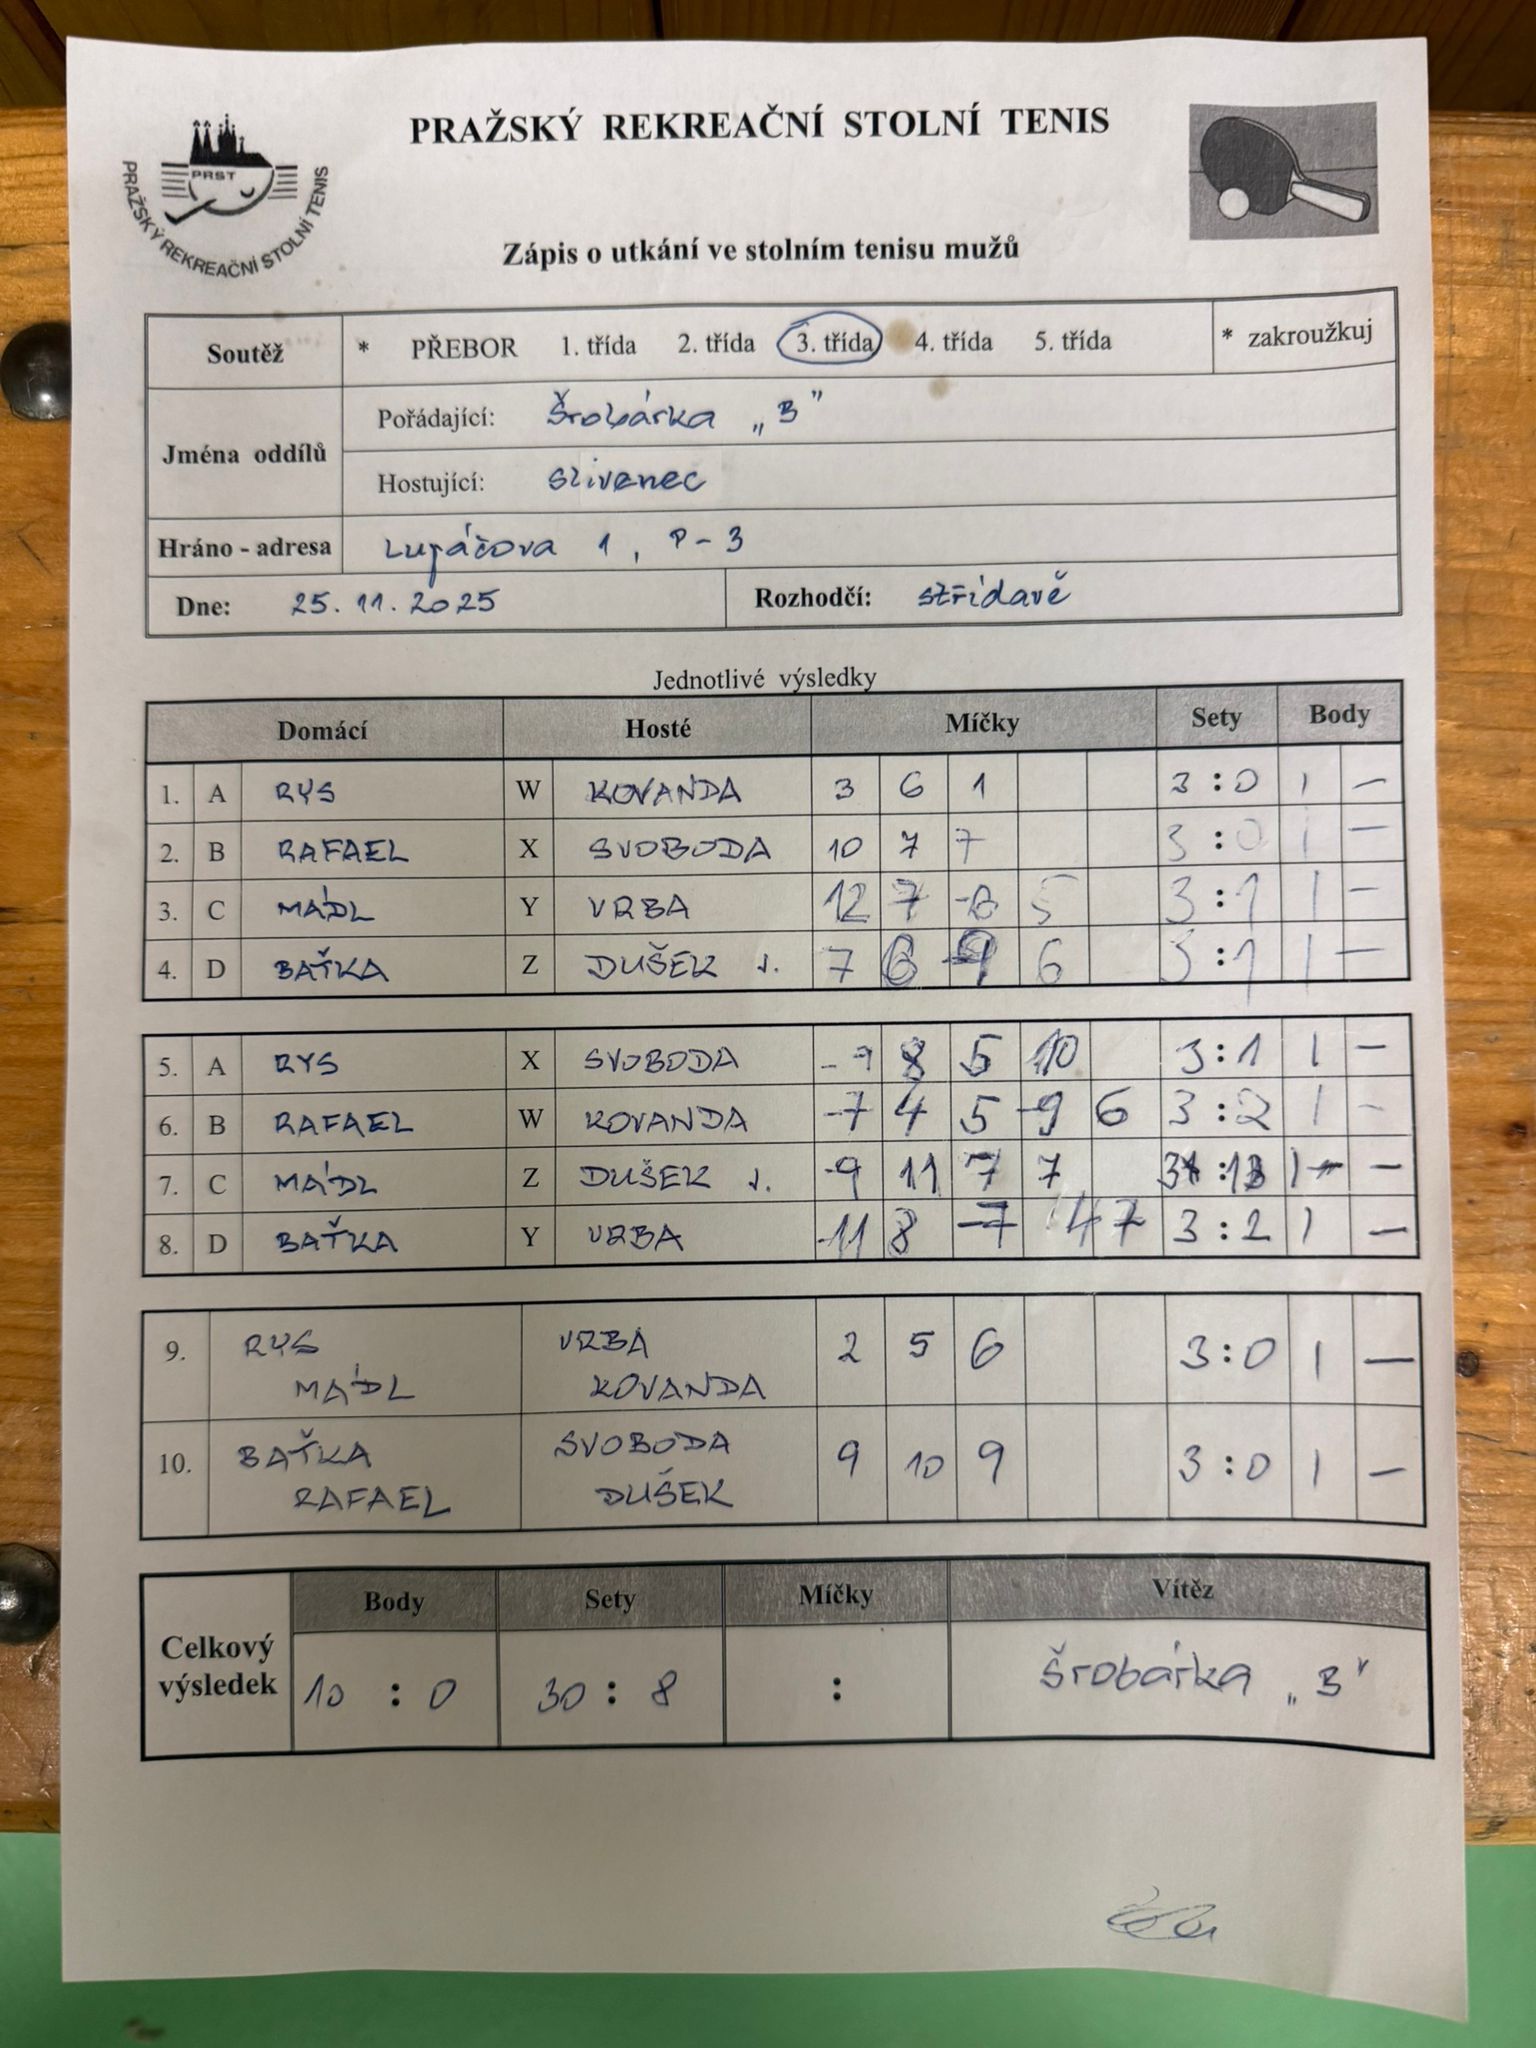 PRAŽSKÝ REKREAČNÍ STOLNÍ TENIS
PRST
PRAŽSKÝ REKREAČNÍ STOLNÍ TENIS
Zápis o utkání ve stolním tenisu mužů
Soutěž * PŘEBOR 1. třída 2. třída 3. třída 4. třída 5. třída * zakroužkuj
Jména oddílů
Pořádající: Šrobárka „B"
Hostující: Slivenec
Hráno - adresa Lupáčova 1, P-3
Dne: 25.11.2025 Rozhodčí: střídavě
Jednotlivé výsledky
Domácí Hosté Míčky Sety Body
1. A RYS W KOVANDA 3 6 1 3:0 1 -
2. B RAFAEL X SVOBODA 10 7 7 3:0 1 -
3. C MÁDL Y VRBA 12 7 5 3:1 1 -
4. D BAŤKA Z DUŠEK J. 7 6 -9 6 3:1 1 -
5. A RYS X SVOBODA 8 5 10 3:1 1 -
6. B RAFAEL W KOVANDA -7 4 5 -9 6 3:2 1 -
7. C MÁDL Z DUŠEK J. -9 11 7 7 3:1 1 -
8. D BAŤKA Y VRBA -11 8 -7 4 7 3:2 1 -
9. RYS VRBA 2 5 6 3:0 1 -
MÁDL KOVANDA
10. BAŤKA SVOBODA 9 10 9 3:0 1 -
RAFAEL DUŠEK
Celkový výsledek
Body Sety Míčky Vítěz
10 : 0 30 : 8 : Šrobárka „B"